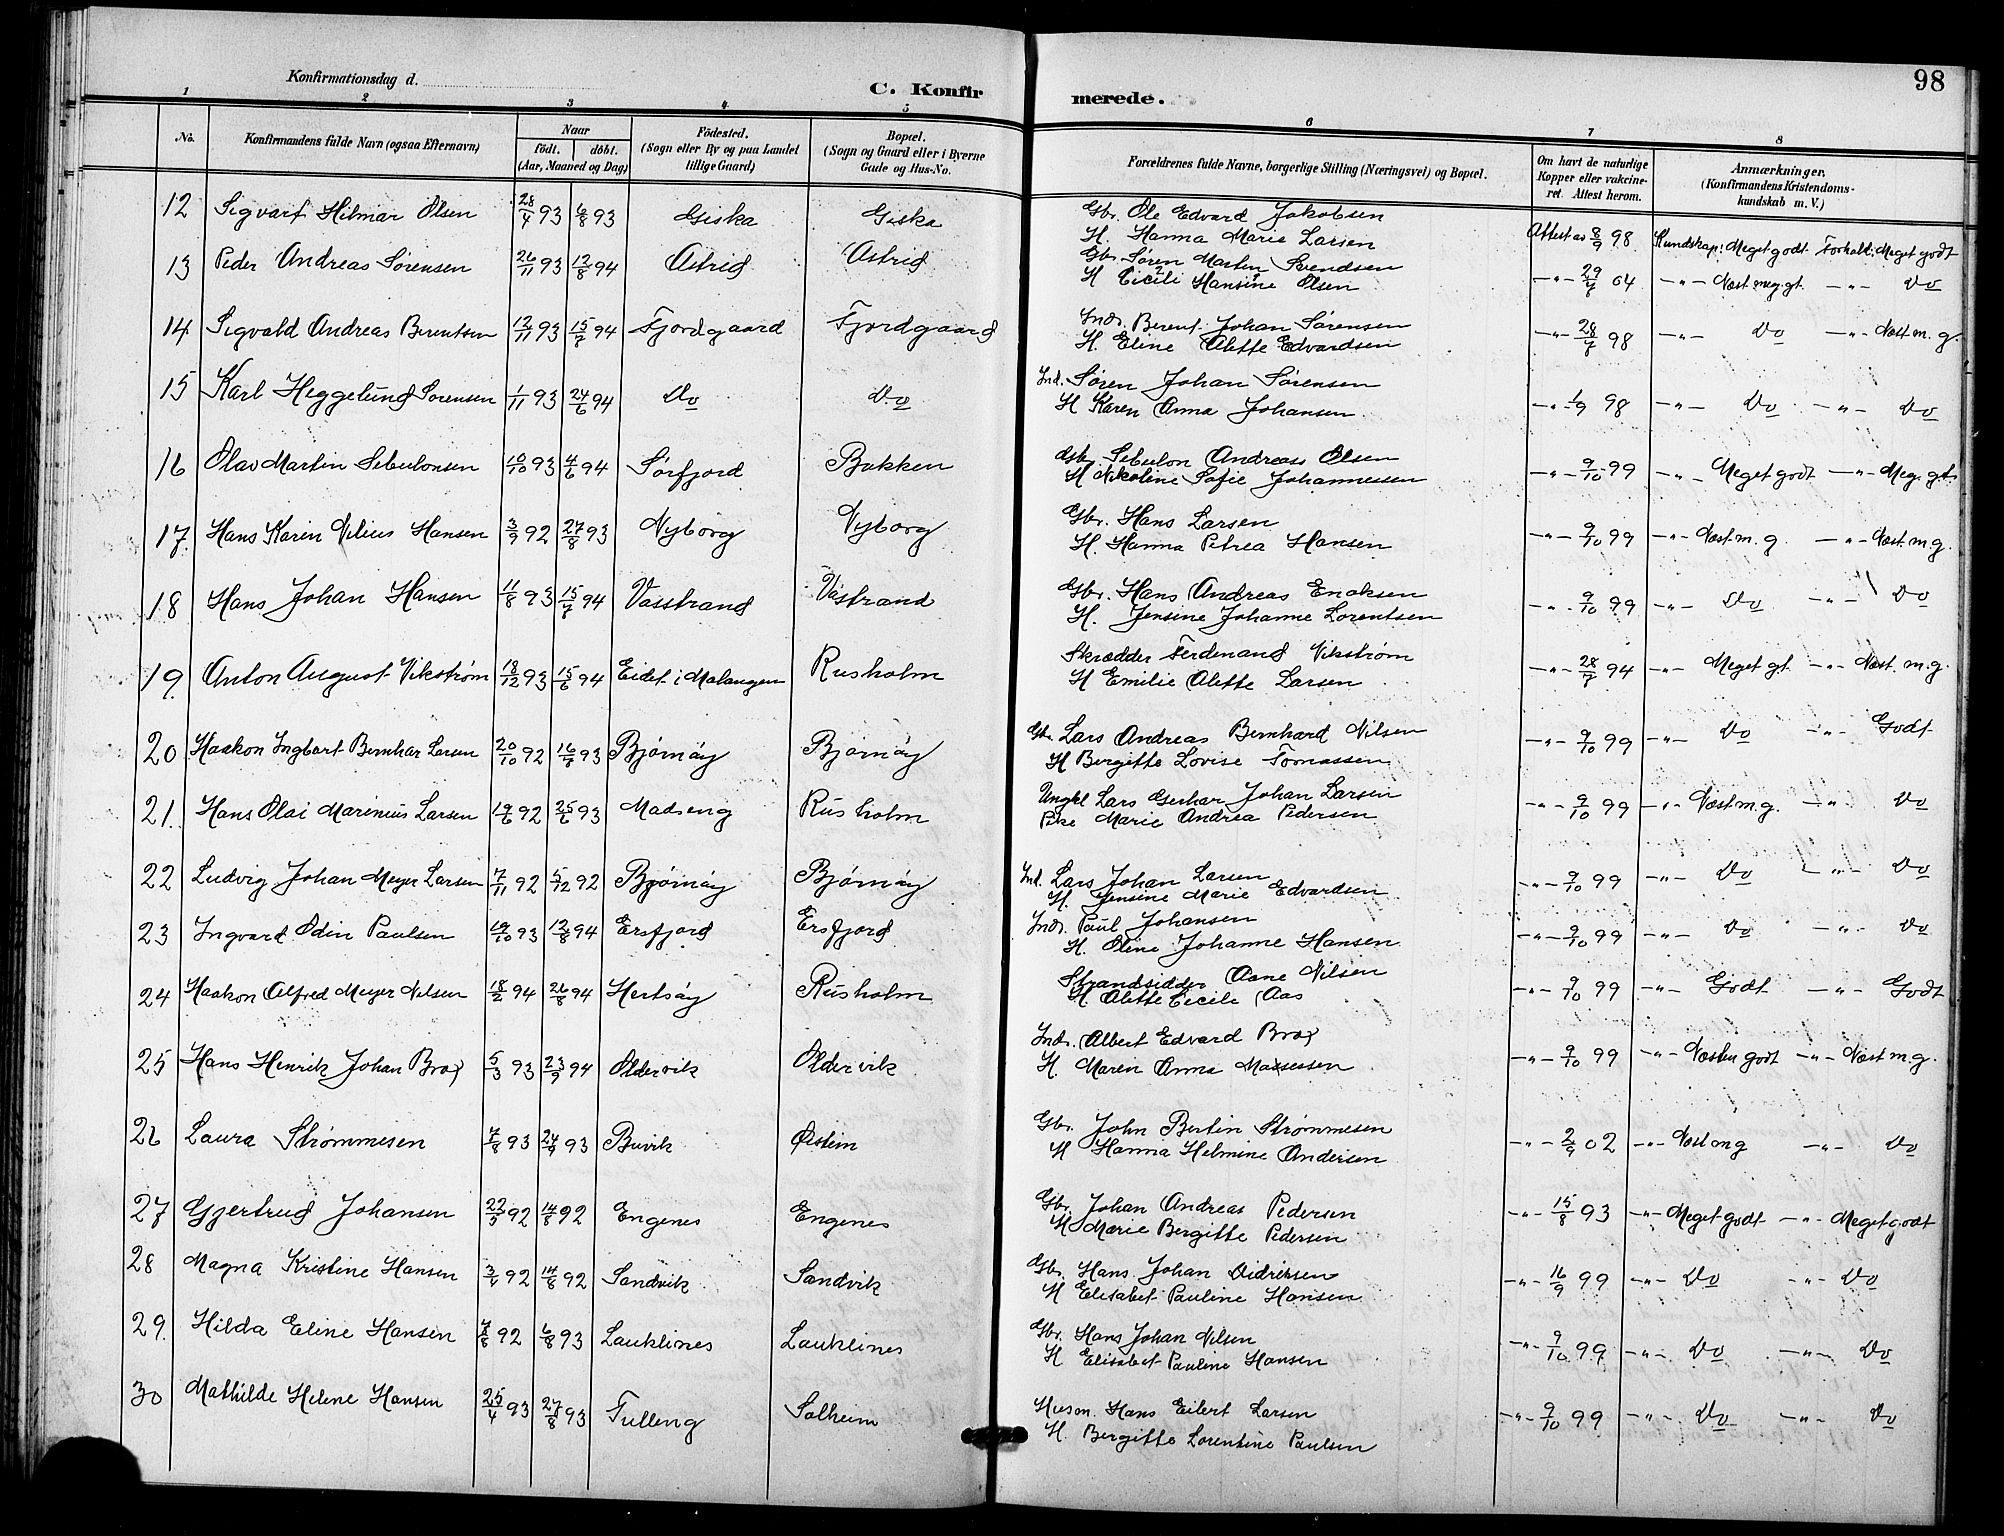 98
Konfirmationsdag d.
C. Konfirmerede.
1 2 3 4 5 6 7 8
No. Konfirmandens fulde Navn (ogsaa Efternavn) Naar födt. döbt. (Aar, Maaned og Dag) Födested. (Sogn eller By og paa Landet tillige Gaard) Bopæl. (Sogn og Gaard eller i Byerne Gade og Hus-No. Forældrenes fulde Navne, borgerlige Stilling (Næringsvei) og Bopæl. Om havt de naturlige Kopper eller vakcineret. Attest herom. Anmærkninger. (Konfirmandens Kristendomskundskab m. V.)
12 Sigvart Hilmar Olsen 28/4 93 6/8 93 Giska Giska Gbr. Ole Edvard Jakobsen
H. Hanna Marie Larsen Attest av 8/9 98 Kundskap: Meget godt Forhold: Meget godt
13 Peder Andreas Sørensen 26/11 93 12/8 94 Astrid Astrid Gbr. Søren Martin Svendsen
H Cicili Hansine Olsen -"- 04 -"- Næst meg. gt. -"- Do
14 Sigvald Andreas Berentsen 12/11 93 94 Fjordgaard Fjordgaard Inds. Berent Johan Sørensen
H. Eline Alette Edvardsen -"- 98 -"- Do -"- Næst m. g.
15 Karl Heggelund Sørensen 1/11 93 24/6 94 Do Do Ind. Søren Johan Sørensen
H Karen Anna Johansen -"- 1/9 98 -"- Do -"- Do
16 Olav Martin Sebulonsen 10/10 93 4/6 94 Sørfjord Bakken Gbr. Sebulon Andreas Olsen
H Nikoline Sofie Johannessen -"- 9/10 99 -"- Meget godt -"- Meg. gt.
17. Hans Karin Nilius Hansen 3/9 92 27/8 93 Nyborg Nyborg Gbr. Hans Larsen
H. Hanna Petrea Hansen -"- 9/10 99 -"- Næst m. g. -"- Næst. m. g.
18 Hans Johan Hansen 11/8 93 15/7 94 Vasstrand Vastrand Gbr. Hans Andreas Enoksen
H. Jensine Johanne Lorentsen -"- 9/10 99 -"- Do -"- Do
19. Anton August Vikstrøm 18/12 93 15/6 94 Eidet i Malangen Rusholm Skrædder Ferdinand Vikstrøm
H Emilie Alette Larsen -"- 28/7 94 -"- Meget gt. -"- Næst. m. g.
20 Haakon Ingbart Bernhar Larsen 20/10 92 93 Bjørnøy Bjørnøy Gbr. Lars Andreas Bernhard Nilsen
H Bergitte Lovise Tomassen -"- 9/10 99 -"- Do -"- Godt
21. Hans Olai Marinius Larsen 19/6 92 25/6 93 Madseng Rusholm Ungkl Lars Gerhar Johan Larsen
Pike Marie Andrea Pedersen -"- 9/10 99 -"- Næst m. g. -"- Do
22 Ludvig Johan Meyer Larsen 7/11 92 5/12 92 Bjørnøy Bjørnøy Ind. Lars Johan Larsen
H. Jensine Marie Edvardsen -"- 9/10 99 -"- Do -"- Do
23 Ingvard Odin Paulsen 19/10 93 12/8 94 Ersfjord Ersfjord Inds. Paul Johansen
H. Oline Johanne Hansen -"- 9/10 99 -"- Do -"- Do
24 Haakon Alfred Meyer Nilsen 18/2 94 26/8 94 Hertsøy Rusholm Strandsidder Aane Nilsen
H Alette Cecile Aas -"- 9/10 99 -"- Godt -"- Godt
25 Hans Henrik Johan Brox 5/3 93 23/9 94 Oldervik Oldervik Inds. Albert Edvard Brox
H. Maren Anna Maxsessen -"- 9/10 99 -"- Næsten godt -"- Næst m. g.
26 Laura Strømmesen 7/8 93 24/9 93 Buvik Østeim Gbr. John Bertin Strømmesen
H Hanna Helmine Andersen -"- 2/9 02 -"- Næst m g -"- Do
27 Gjertrud Johansen 22/5 92 14/8 92 Engenes Engenes Gbr. Johan Andreas Pedersen
H Marie Bergitte Pedersen -"- 15/8 93 -"- Meget godt -"- Meget godt
28 Magna Kristine Hansen 92 14/8 92 Sandvik Sandvik Gbr. Hans Johan Didriksen
H Elisabet Pauline Hansen -"- 16/9 99 -"- Do -"- Do
29. Hilda Eline Hansen 92 6/8 93 Lauklines Lauklines Gbr. Hans Johan Nilsen
H Elisabet Pauline Hansen -"- 9/10 99 -"- Do -"- Do
30 Mathilde Helene Hansen 25/4 93 27/8 93 Tulleng Solheim Husm. Hans Eilert Larsen
H. Bergitte Lorentine Paulsen -"- 9/10 99 -"- Do -"- Do